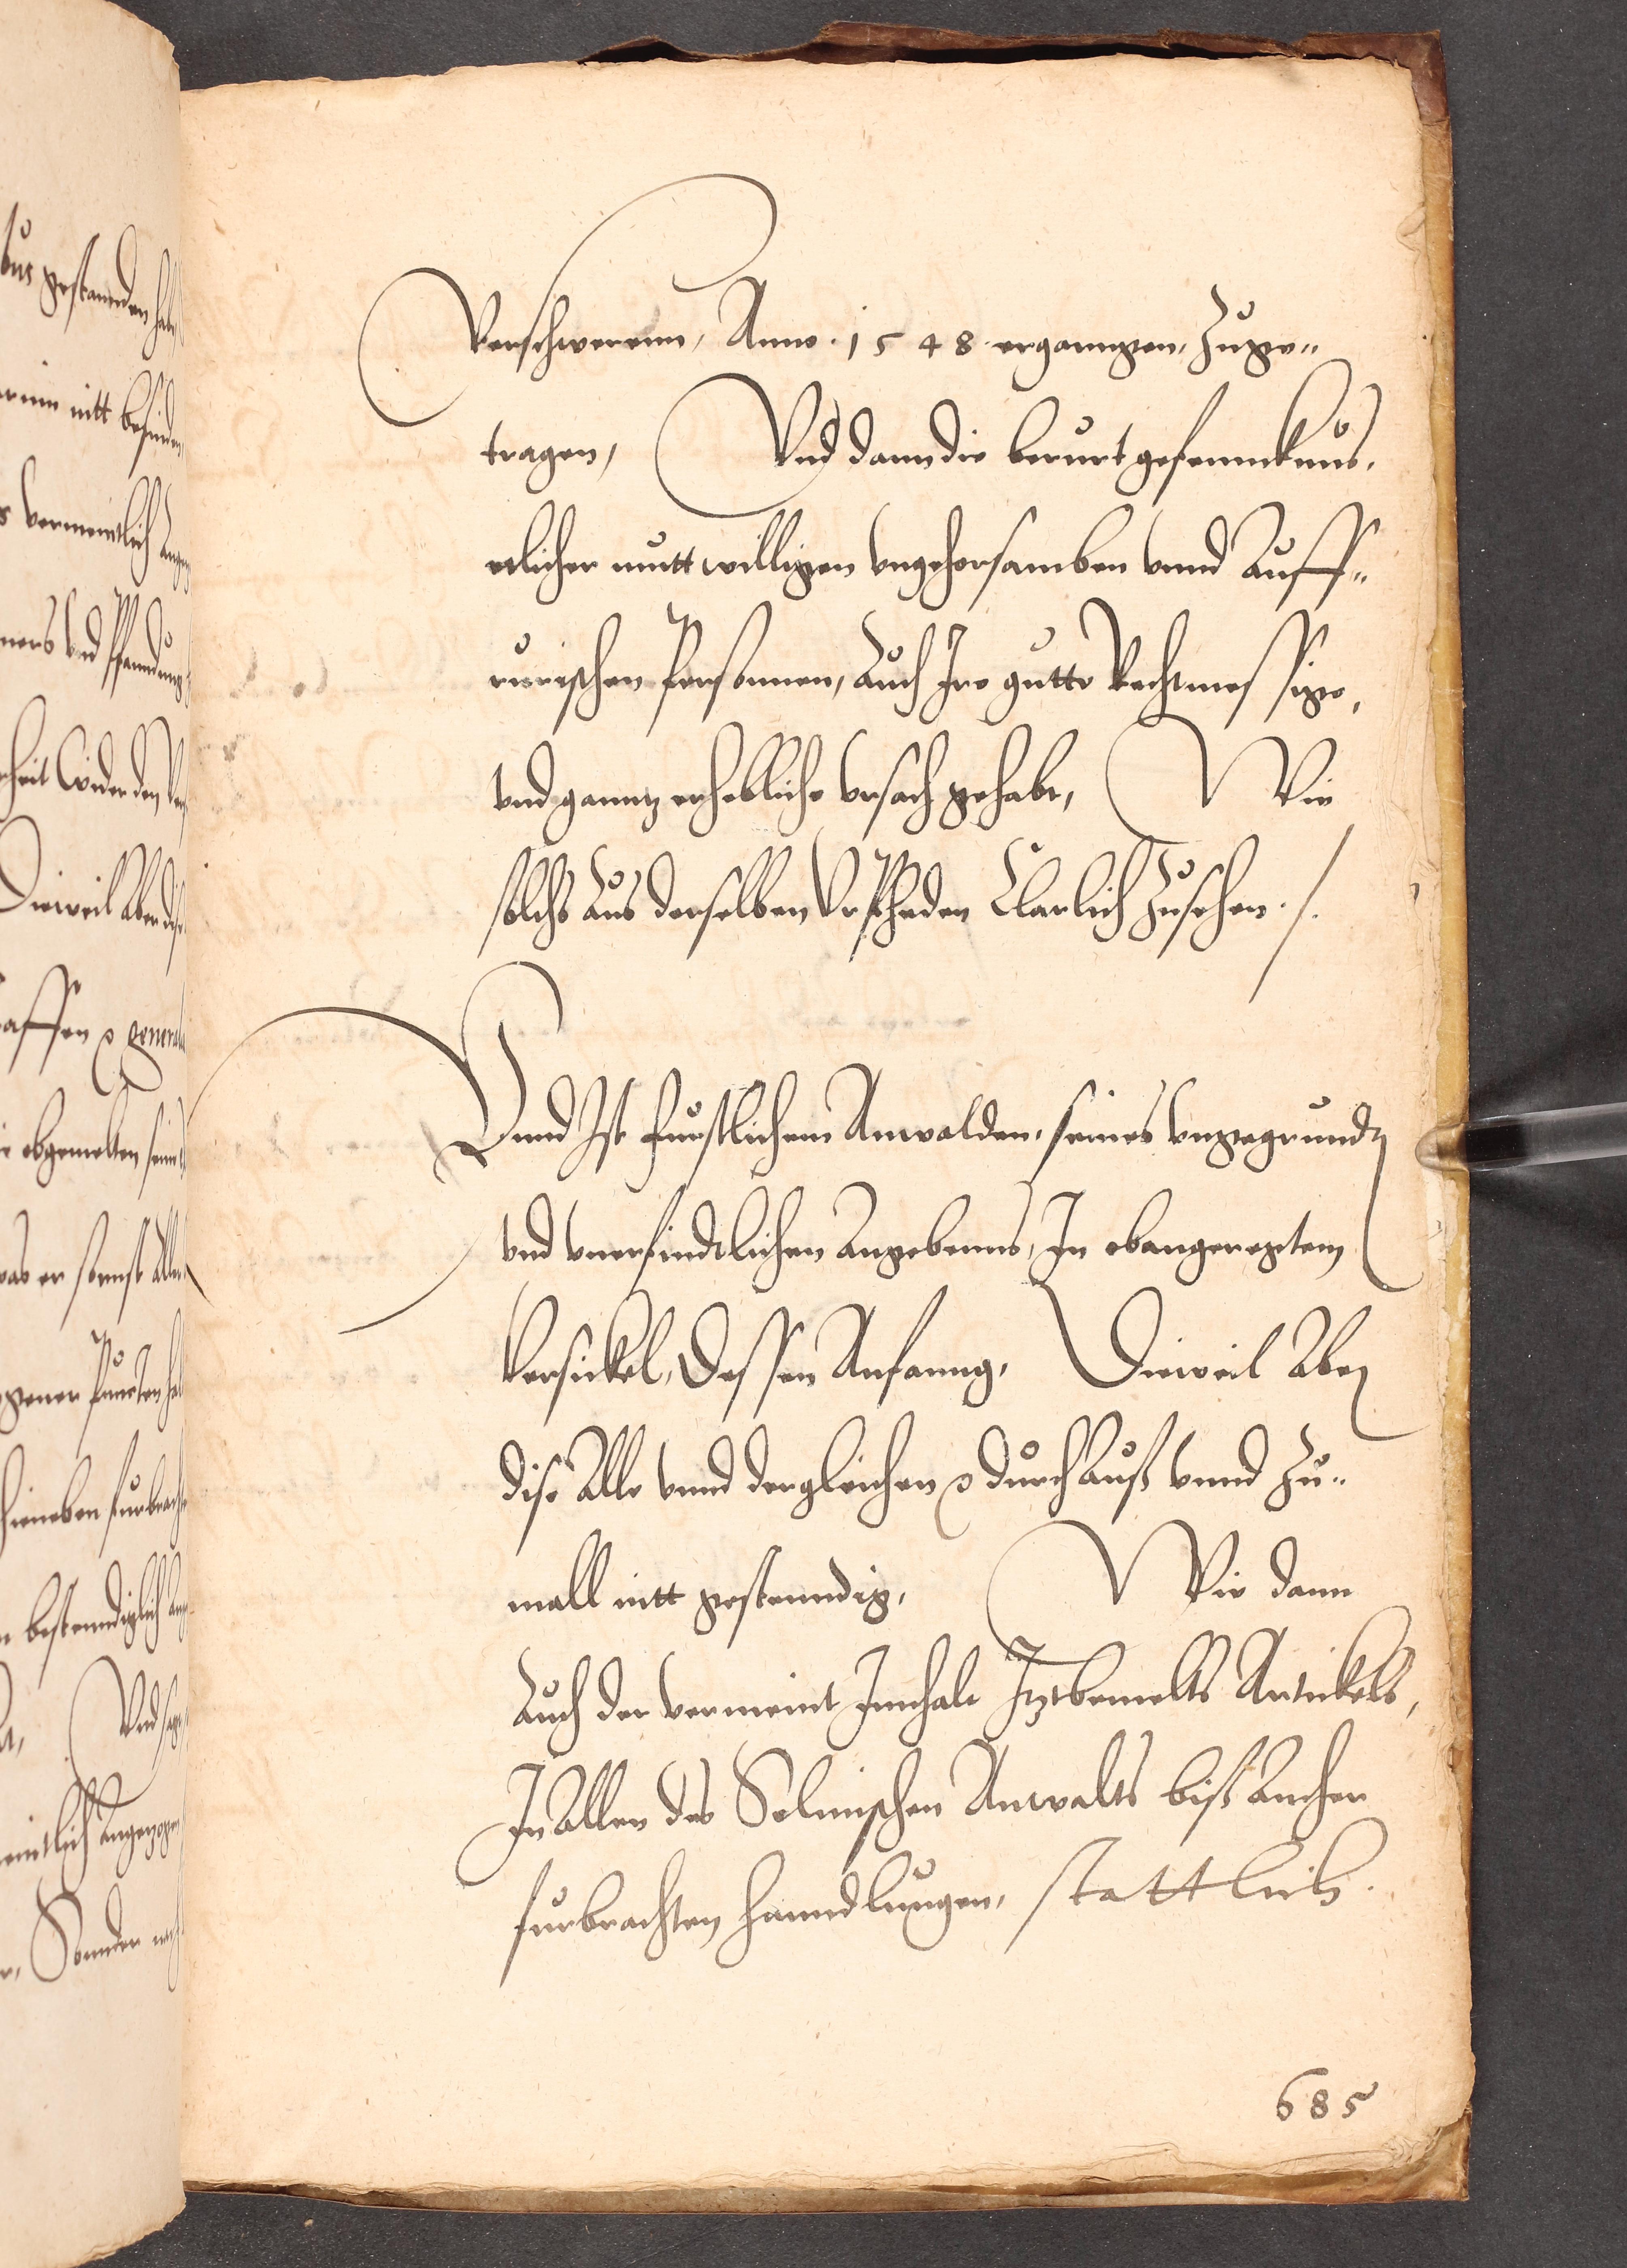 Verschwerenn, Anno. 1548. ergangen, Zuge-
tragen, Vnd dann die berurt gefenncknus,
etlicher muttwilligen vngehorsamben vnnd Auff-
rurischen Personnen, Auch Ire gutte Rechtmessige,
vnd ganntz erhebliche vrsach gehabt, Wie
solchs Aus derselben Vrpheden Clarlich Zusehen ./.
Vnnd Ist furstlichem Anwalden, seines vngegrundten
vnd vnerfindtlichen Angebenns, In obangeregtem
Versickel, Dessen Anfanng, Dieweil Aber
dise Alle vnnd dergleichen durchauß vnnd Zu-
mall nitt gestenndig, Wie dann
Auch der vermeint Innhalt Itztbemelts Artickels,
In Allen des Solmischen Anwalts biß Anher
furbrachten hanndlungen, stattlich.
685